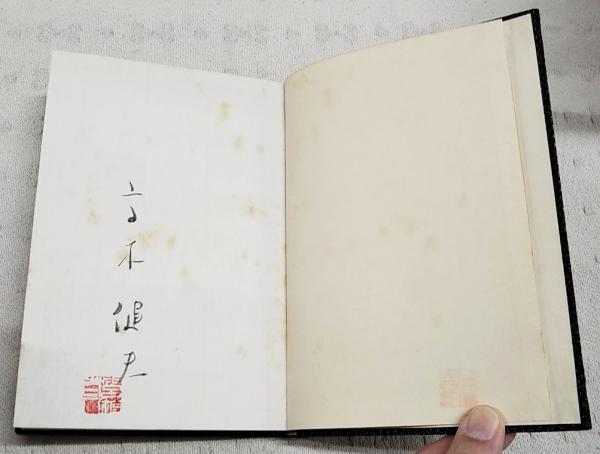 高木健夫